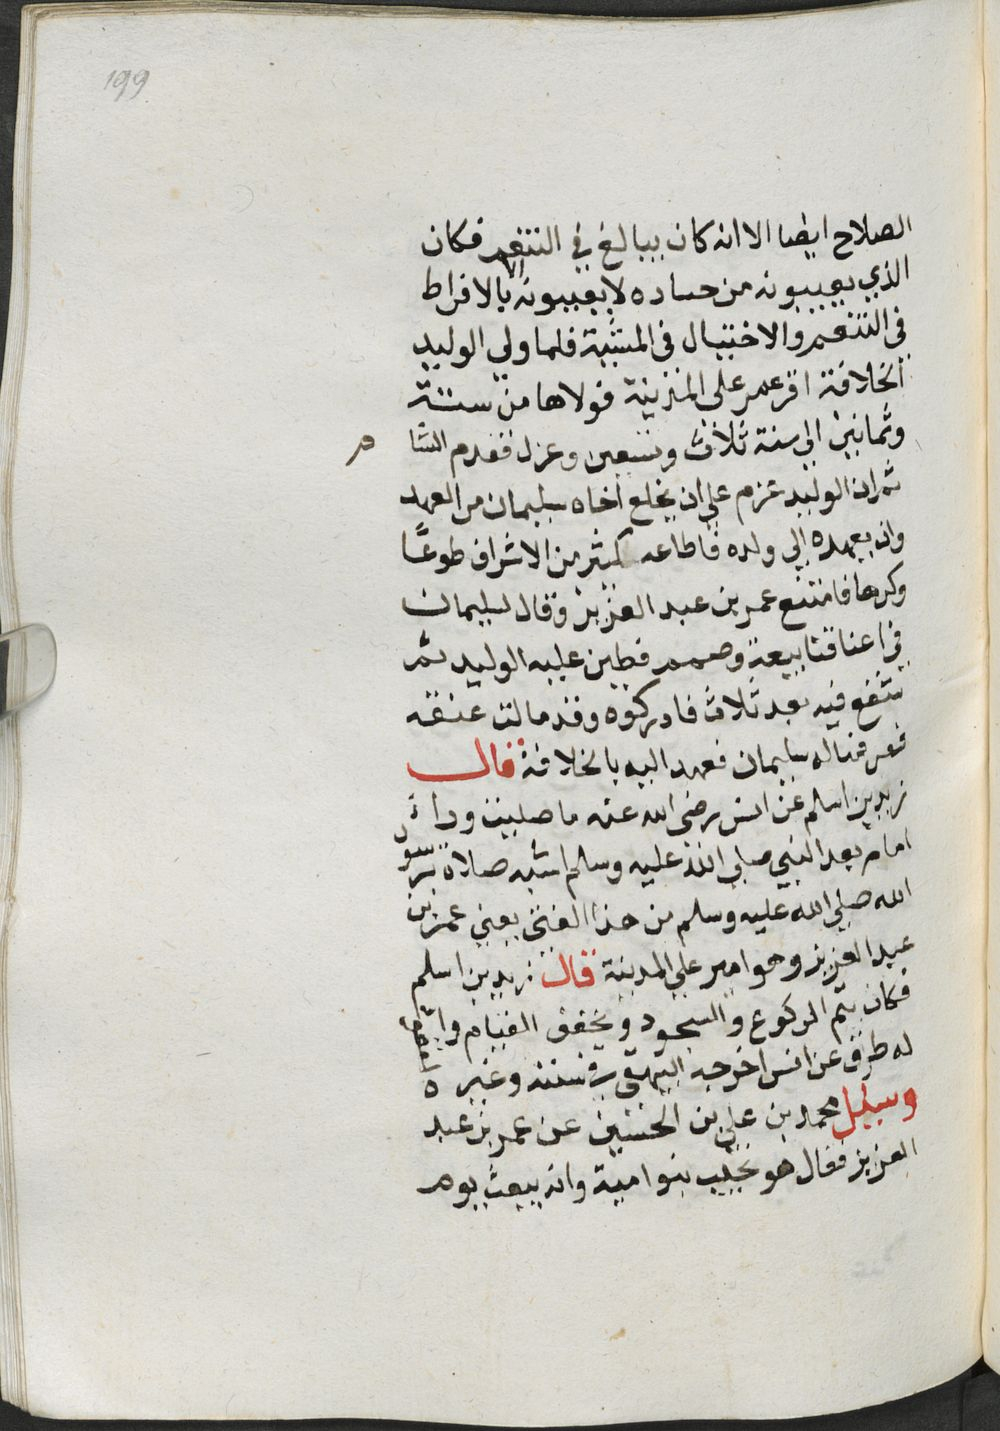 199
الصلاح ايضا الا انه كان يبالغ في التنعم فكان
الذي يعيبونه من حساده لا يعيبونه الا بالافراط
في التنعم والاختيال في المشية فلما ولي الوليد
الخلافة اقر عمر علي المدينة فولاها من سنة
وثمانين الي سنة ثلاث وتسعين وعزل فقدم الشام
ثم ان الوليد عزم علي ان يخلع اخاه سليمان من العهد
وان يعهده الي ولده فاطاعه كثير من الاشراف طوعًا
وكرها فامتنع عمر بن عبد العزيز وقال لسليمان
في اعناقنا بيعة وصمم فطين عليه الوليد ثم
شفع فيه بعد ثلاث فادركوه وقد مالت عنقه
فعرفها له سليمان فعهد اليه بالخلافة قال
زيد بن اسلم عن انس رضي الله عنه ما صليت وراء
امام بعد النبي صلي الله عليه وسلم اشبه صلاة برسول
الله صلي الله عليه وسلم من هذا الفتي يعني عمر بن
عبد العزيز وهو امير علي المدينة قال زيد بن اسلم
فكان يتم الركوع والسجود ويخفف القيام والقعود
له طرق عن انس اخرجه البيهقي في سننه وغيره
وسيل محمد بن علي بن الحسين عن عمر بن عبد
العزيز فقال هو نجيب بنو امية وانه يبعث يوم